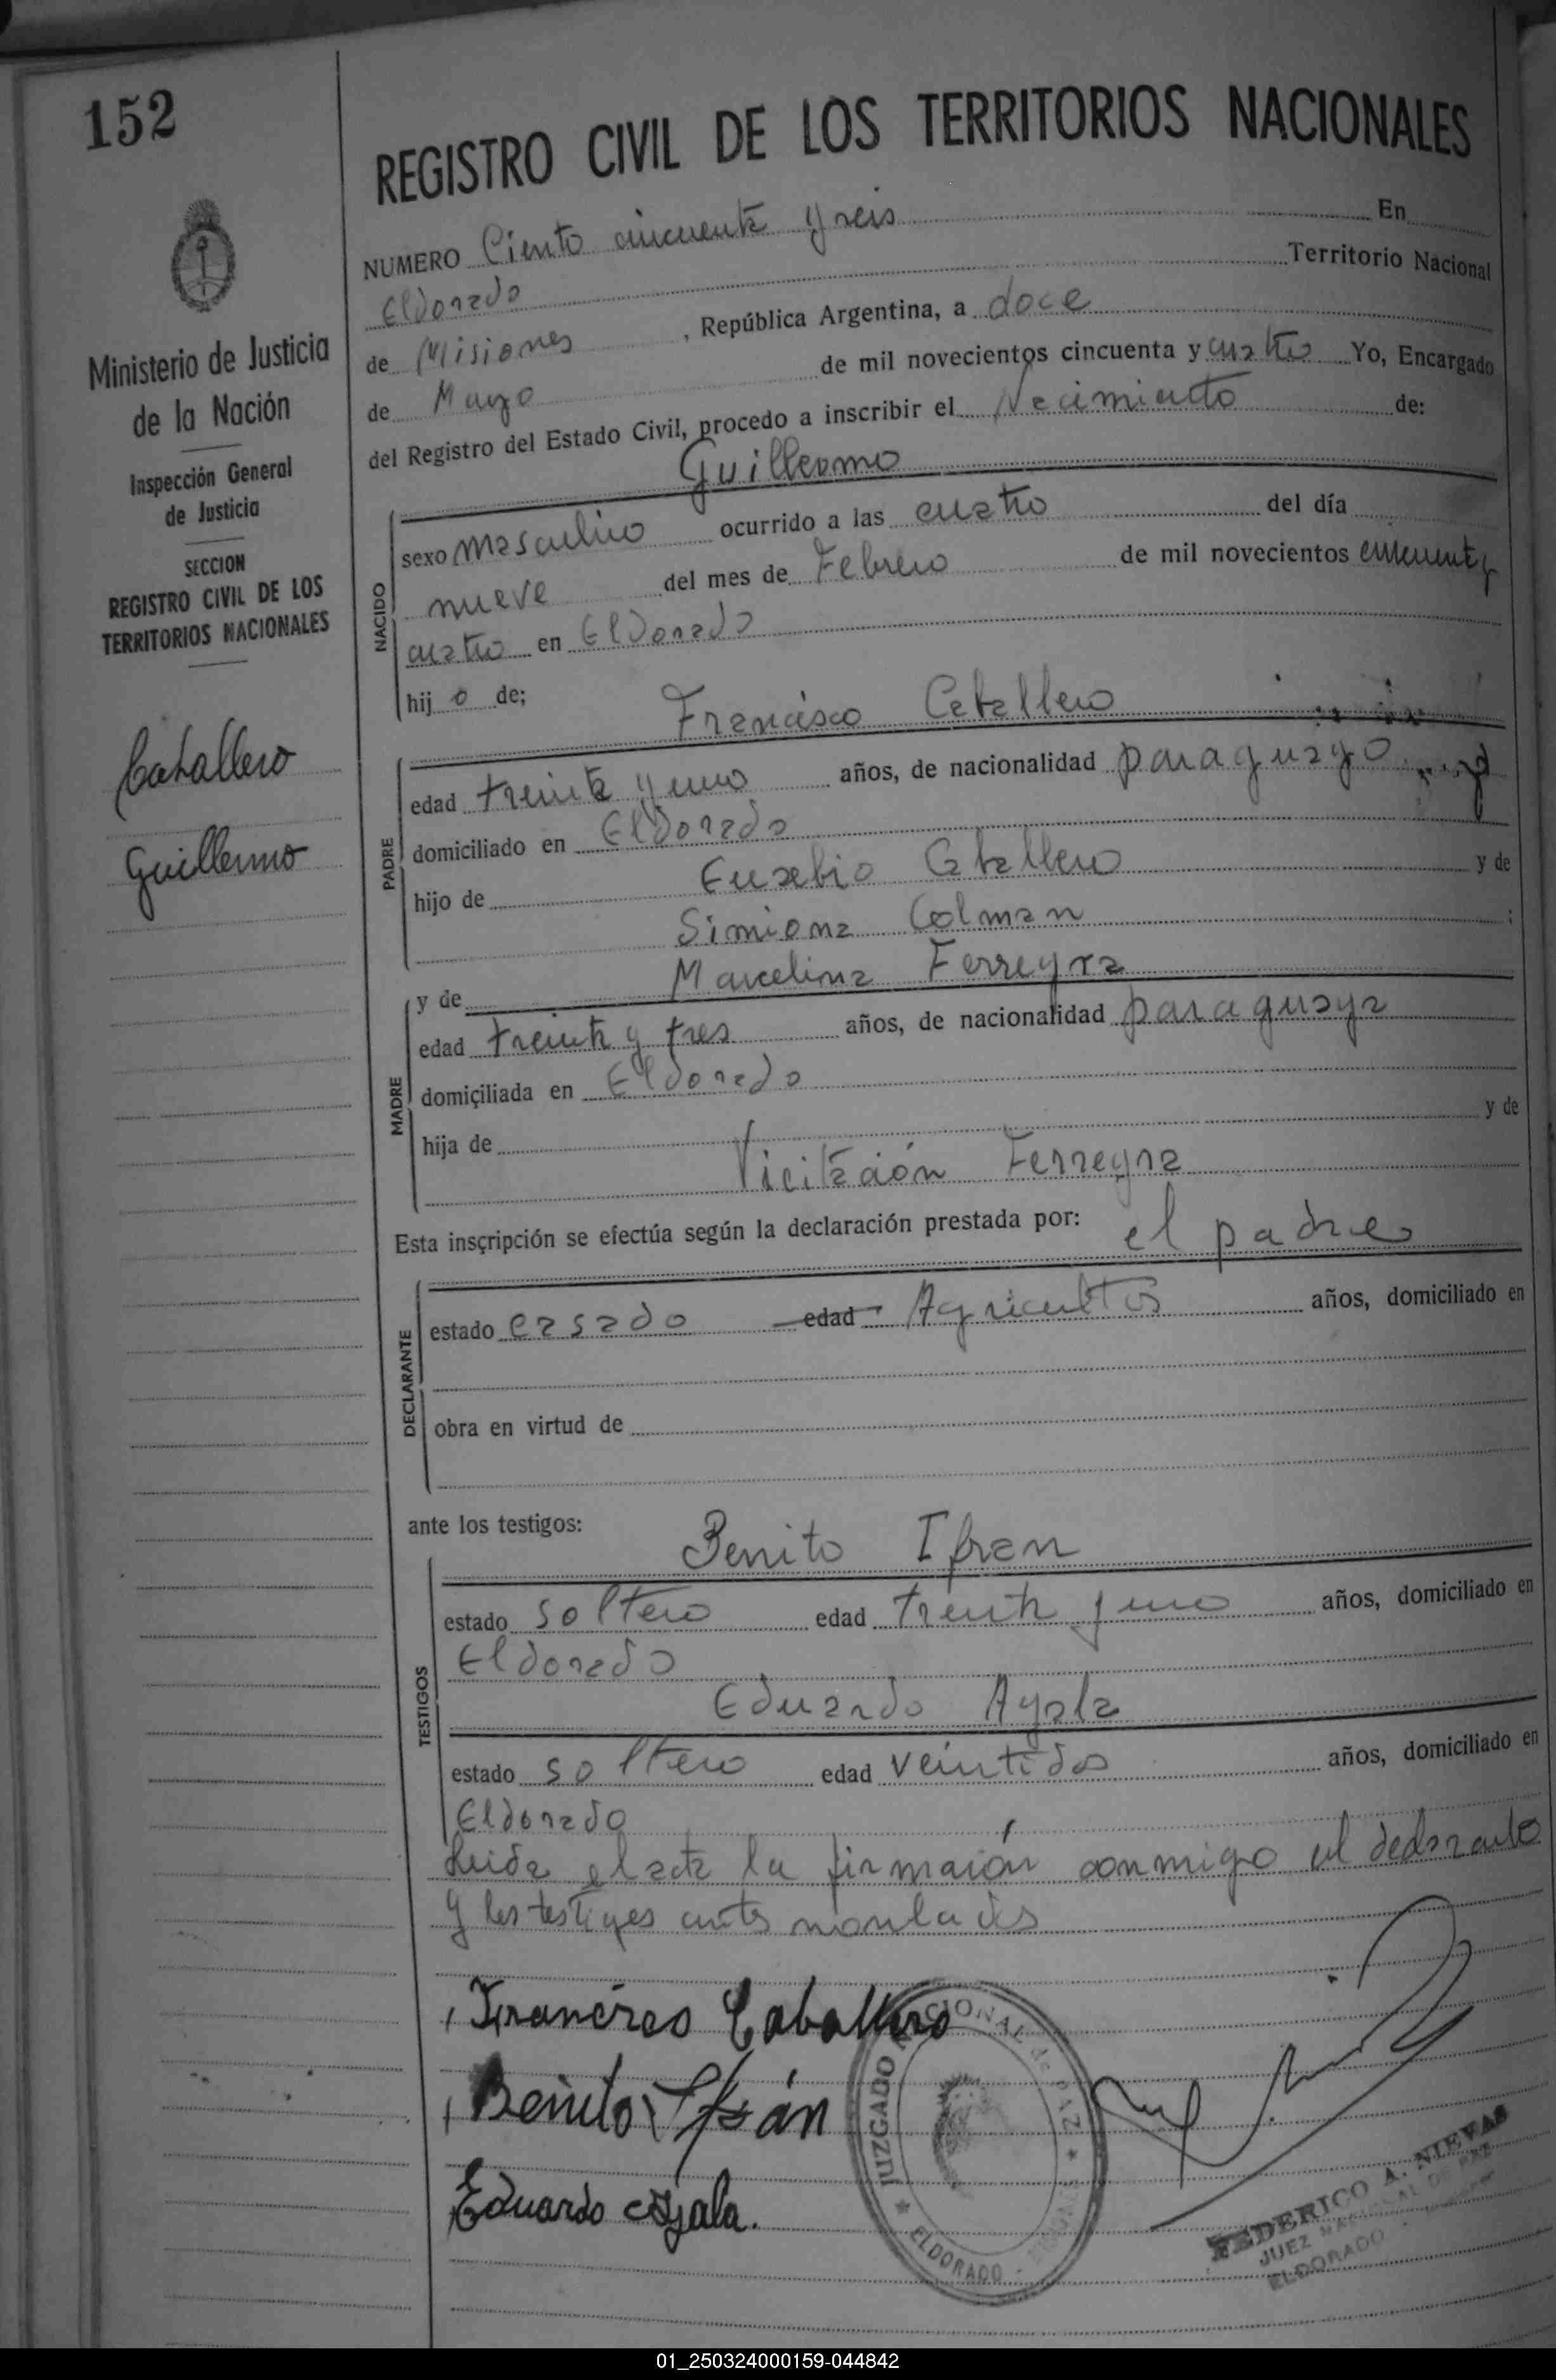 152
REGISTRO CIVIL DE LOS TERRITORIOS NACIONALES
Ministerio de Justicia
de la Nación
Inspección General
de Justicia
SECCION
REGISTRO CIVIL DE LOS
TERRITORIOS NACIONALES
Caballero
Guillermo
NUMERO Ciento cincuenta y seis En
Eldorado Territorio Nacional
de Misiones, República Argentina, a doce
de Mayo de mil novecientos cincuenta y cuatro Yo, Encargado
del Registro del Estado Civil, procedo a inscribir el Nacimiento de:
Guillermo
NACIDO
sexo masculino ocurrido a las cuatro del día
nueve del mes de Febrero de mil novecientos cincuenta y
cuatro en Eldorado
hij o de;
Francisco Caballero
PADRE
edad treinta y uno años, de nacionalidad paraguayo
domiciliado en Eldorado
hijo de Eusebio Caballero y de
Simiona Colman ;
y de Marcelina Ferreyra
MADRE
edad treinta y tres años, de nacionalidad paraguaya
domiciliada en Eldorado
hija de y de
Vicitación Ferreyra
Esta inscripción se efectúa según la declaración prestada por: el padre
DECLARANTE
estado casado edad Agricultor años, domiciliado en
obra en virtud de
ante los testigos:
Benito Ifran
TESTIGOS
estado soltero edad treinta y uno años, domiciliado en
Eldorado
Eduardo Ayala
estado soltero edad veintidos años, domiciliado en
Eldorado
Leida el acta la firmaron conmigo el declarante
y los testigos antes
Caballero
Benito Ifrán
Eduardo Ayala.
JUZGADO NACIONAL de PAZ
ELDORADO
FEDERICO A. NIEVAS
JUEZ NACIONAL DE PAZ
ELDORADO
01_250324000159-044842